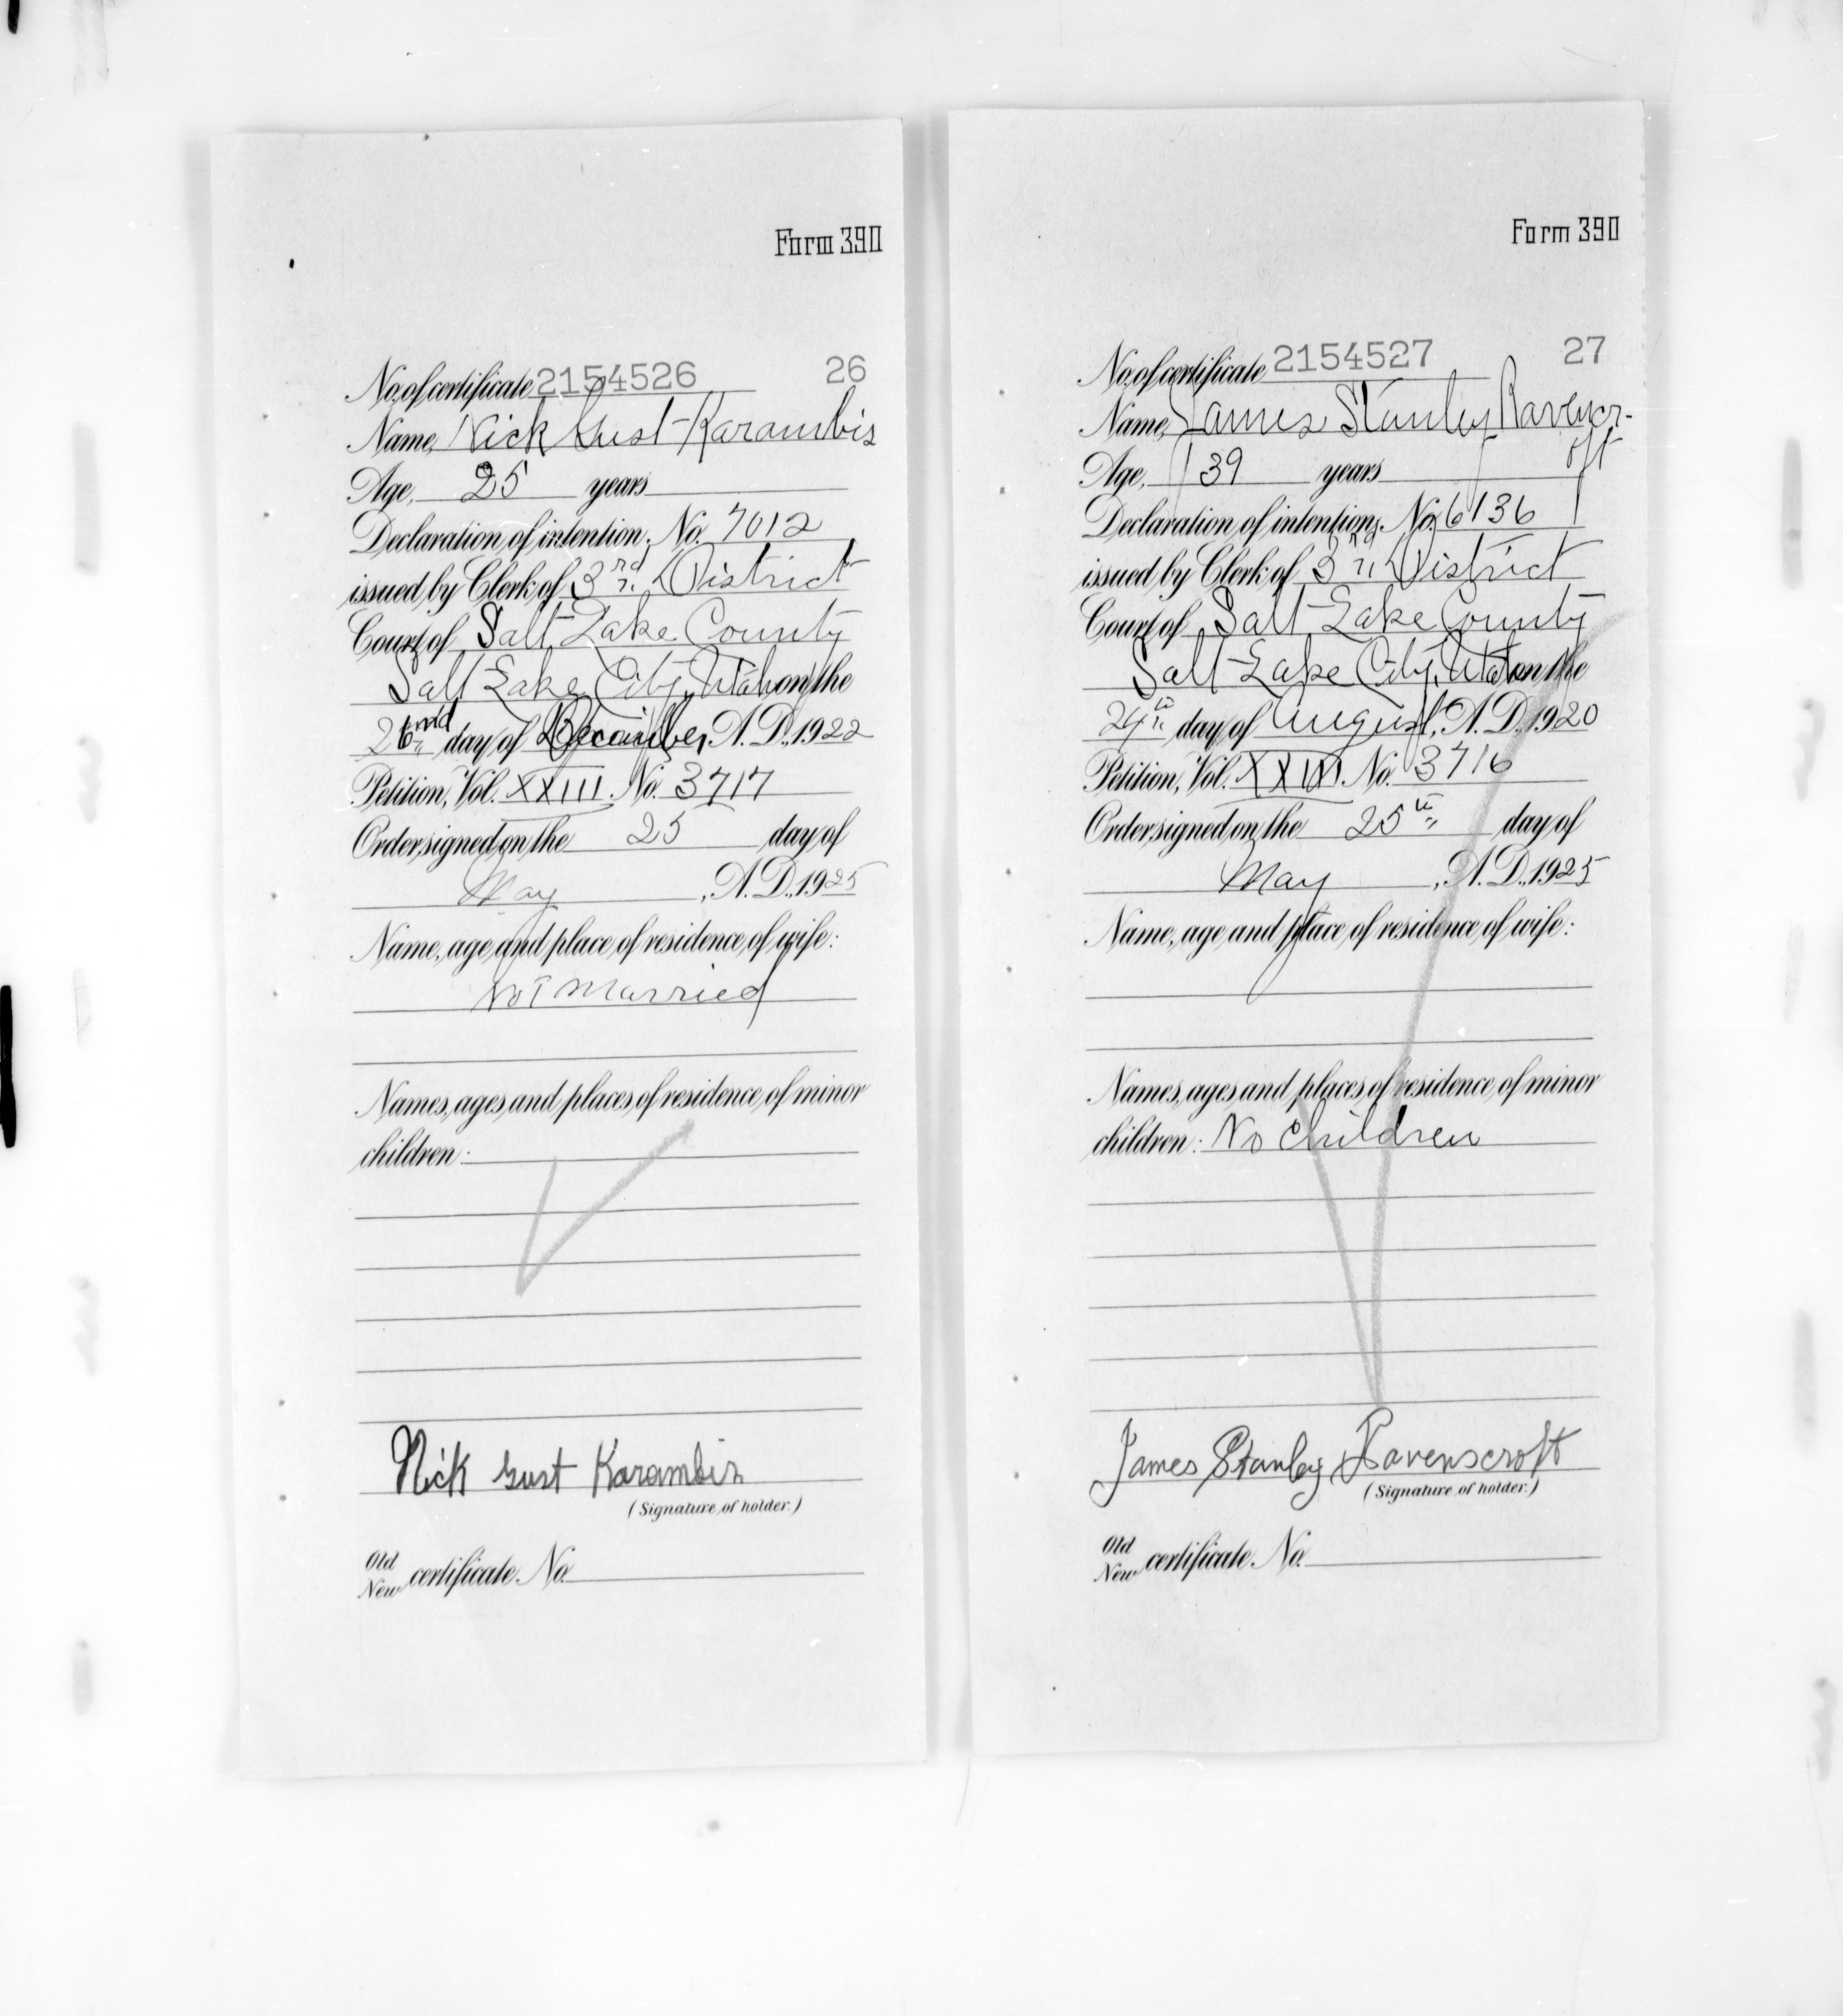 Form 390
No. of certificate 2154526 26
Name, Nick Gust Karambis
Age, 25 years
Declaration of intention, No. 7012
issued by Clerk of 3rd District
Court of Salt Lake County
Salt Lake City, Utah on the
day of December, A. D., 1922
Petition, Vol. XXIII. No. 3717
Order signed on the 25 day of
May, A. D., 1925
Name, age and place of residence of wife:
Not Married
Names, ages and places of residence of minor
children:
Nick Gust Karambis
(Signature of holder.)
Old
New certificate No.
Form 390
No. of certificate 2154527 27
Name, James Stanley Ravenscr-
oft
Age, 39 years
Declaration of intention, No. 6136
issued by Clerk of 3rd District
Court of Salt Lake County
Salt Lake City, Utah on the
24th day of August, A. D., 1920
Petition, Vol. XXIII. No. 3716
Order signed on the 25th day of
May, A. D., 1925
Name, age and place of residence of wife:
Names, ages and places of residence of minor
children: No Children
James Stanley Ravenscroft
(Signature of holder.)
Old
New certificate No.